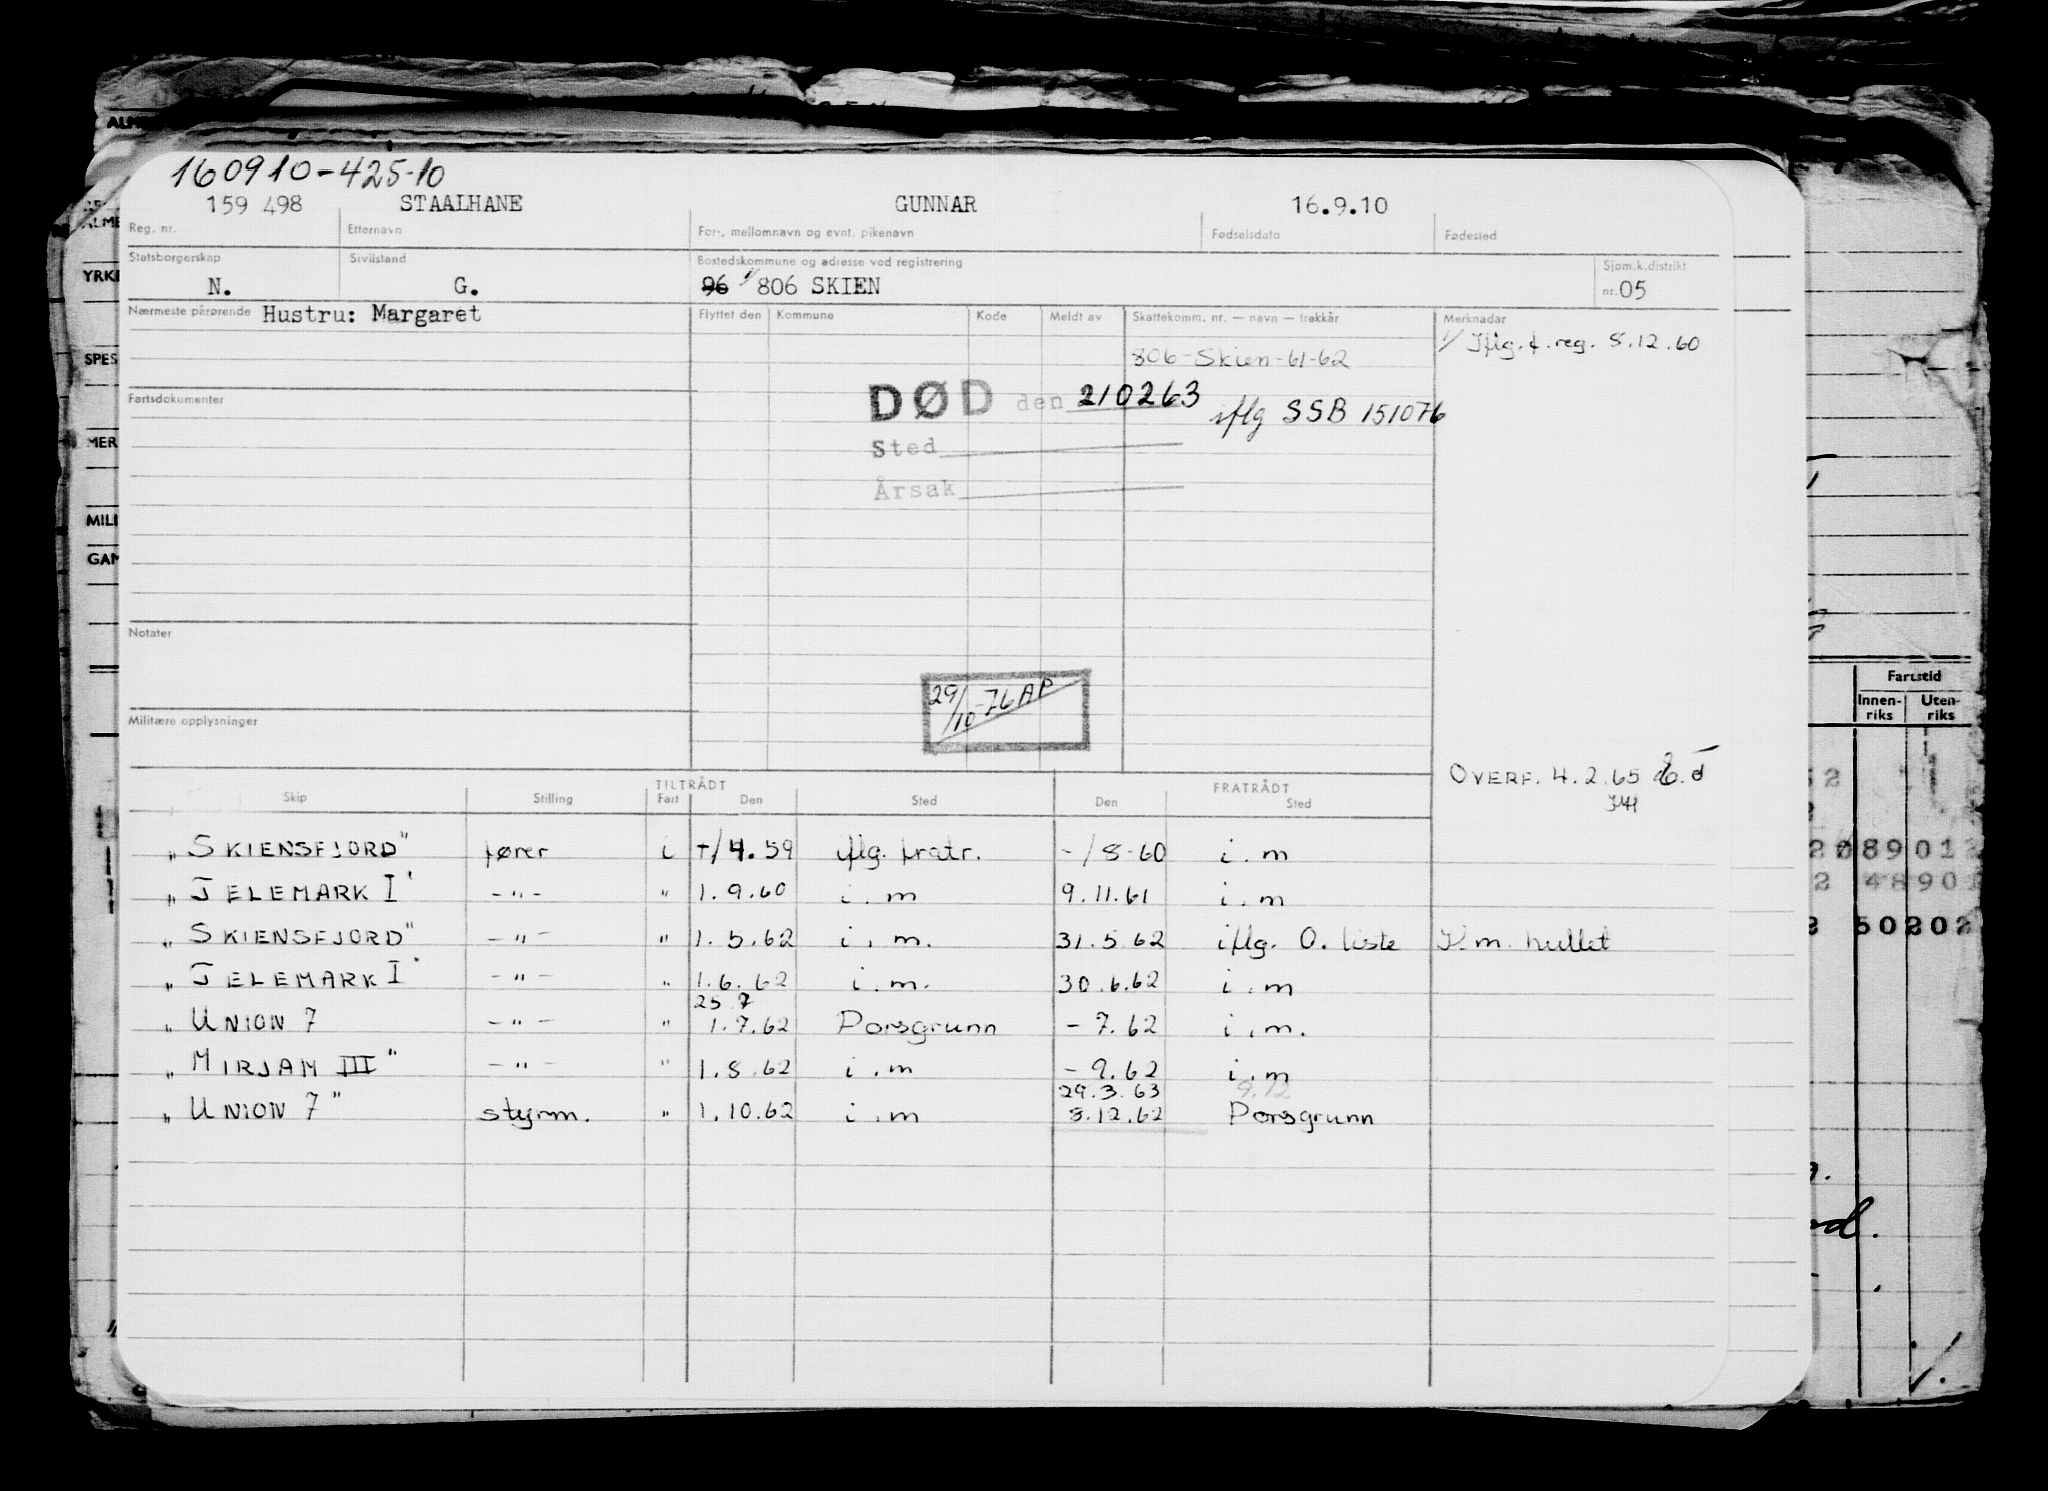 160910-425-10
159 498 STAALHANE GUNNAR 16.9.10
Reg. nr. Etternavn For-, mellomnavn og evnt. pikenavn Fødselsdato Fødested
Statsborgerskap Sivilstand Bostedskommune og adresse ved registrering Sjøm.k.distrikt
N. G. 96 1/ 806 SKIEN nr. 05
Nærmeste pårørende Hustru: Margaret Flyttet den Kommune Kode Meldt av Skattekomm. nr. — navn — trekkår Merknader
1/ Iflg. f. reg. 5.12.60
806-Skien-61-62
Fartsdokumenter
DØD den 210263 iflg SSB 151076
Sted
Årsak
Notater
29/10-76 AP
Militære opplysninger
OVERF. 4.2.65
TILTRÅDT FRATRÅDT
Skip Stilling Fart Den Sted Den Sted
„SKIENSFJORD" fører i +/4.59 iflg. fratr. -/8-60 i.m
„TELEMARK I" -"- " 1.9.60 i.m 9.11.61 i.m
„SKIENSFJORD" -"- " 1.5.62 i.m. 31.5.62 iflg. O. liste K.m. hullet
„TELEMARK I" -"- " 1.6.62 i.m. 30.6.62 i.m
25.7
„UNION 7 -"- " 1.7.62 Porsgrunn - 7.62 i.m.
„MIRJAM III" -"- " 1.8.62 i.m - 9.62 i.m
29.3.63 9.12
„UNION 7" styrm. " 1.10.62 i.m 8.12.62 Porsgrunn
YRKE
SPES
MER
MILI
GAM
Fartstid
Innen-riks Uten-riks
89012
4890
50202